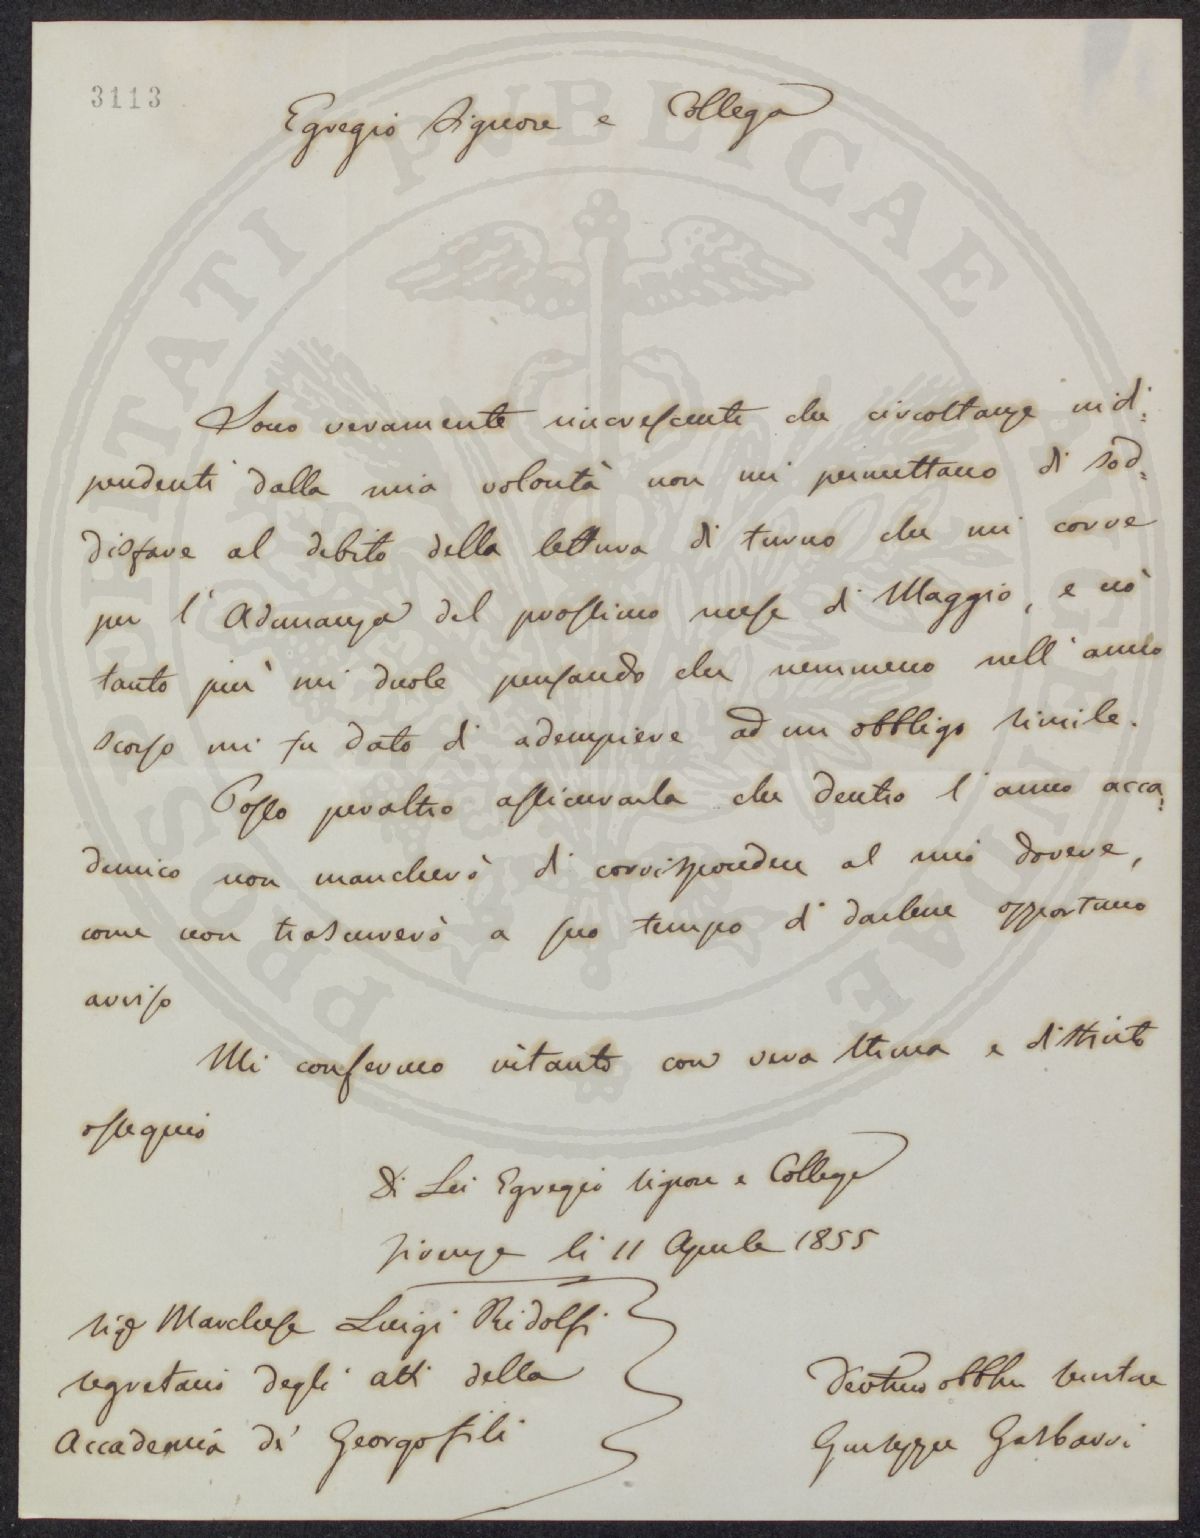 3113
Egregio Signore e Collega
Sono veramente rincrescente che circostanze indi:
pendenti dalla mia volontà non mi permettano di sod:
disfare al debito della lettura di turno che mi corre
per l'Adunanza del prossimo mese di Maggio, e ciò
tanto più mi duole pensando che nemmeno nell'anno
scorso mi fu dato di adempiere ad un obbligo simile.
Posso peraltro assicurarla che dentro l'anno acca:
demico non mancherò di corrispondere al mio dovere,
come non trascurerò a suo tempo di darlene opportuno
avviso
Mi confermo intanto con vera stima e distinto
ossequio
Di Lei Egregio Signore e Collega
Firenze li 11 Aprile 1855
Sig Marchese Luigi Ridolfi
Segretario degli atti della
Accademia dei Georgofili
Devotmo obblmo servitore
Giuseppe Gasbarri
PROSPERITATI PUBLICAE AUGENDAE